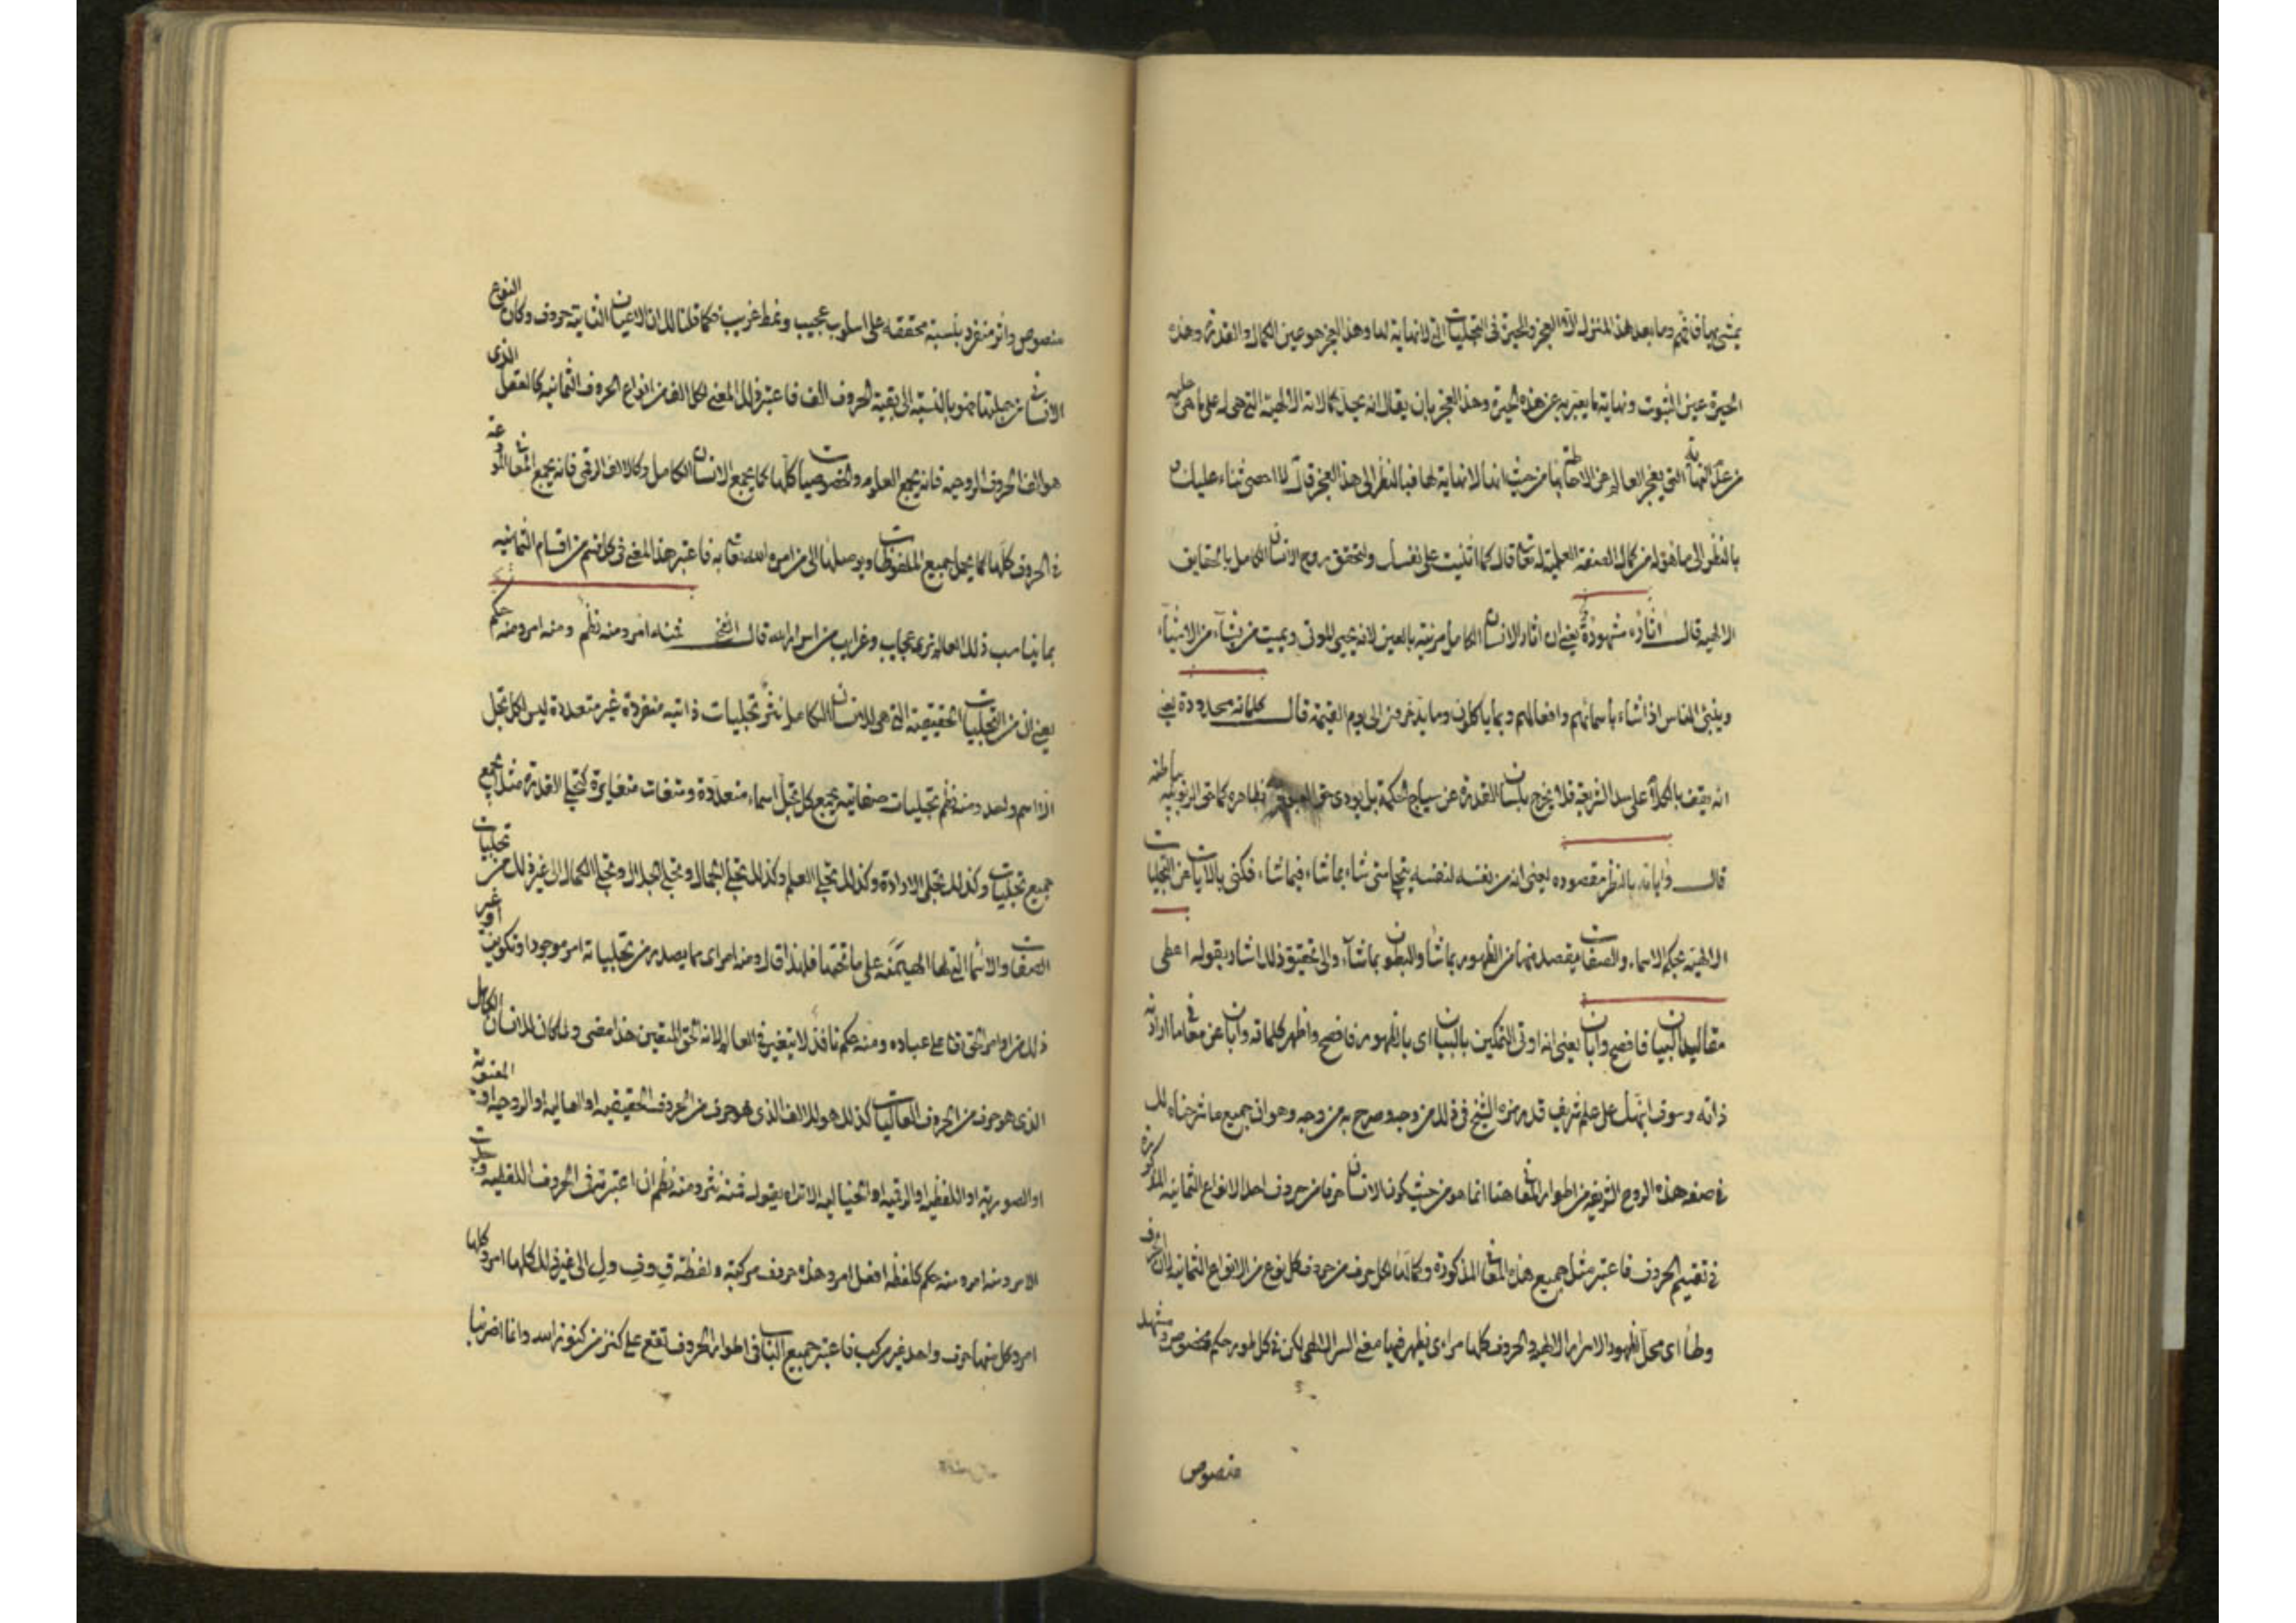 يمشي بها قائم وما بعد هذا المنزل الا العجز والحيرة في التجليات التي لا نهاية لها وهذا العجز هو عين الكمال والقدرة وهذه
الحيرة عين الثبوت ونهاية ما يعبر به عن هذه الحيرة وهذا العجز بان يقال انه يجل كمالاته الالهية التي هي له على ما هي عليه
من عدم النهاية التي يعجز العالم عن الاحاطة بها من حيث انها لا نهاية لها فبالنظر الى هذا العجز قال لا احصي ثناء عليك و
بالنظر الى ما هو له من كمال الصفة العلمية له تعالى قال كما اثنيت على نفسك والتحقق بروح الانسان الكامل بالحقايق
الالهيه قال اثاره مشهودة يعني ان اثار الانسان الكامل مرئية بالعين لانه يحيي الموتى ويميت من يشآء من الاشيآء
وينبئ الناس اذا شاء باسمائهم وافعالهم وبما ياكلون وما يدخرون الى يوم القيمة قال كلماته محدودة يعني
انه يقف بالكلام على سد الشريعة فلا يخرج بلسان القدرة عن سياج الحكمة بل يودي حق العبودية بظاهره كما حق الربوبية بباطنه
قال واياته بالنظر مقصوده يعني انه من نفسه لنفسه يتجلى متى شاء بما شاء فيما شاء فكنى بالايات عن التجليات
الالهية بحكم الاسماء والصفات يقصد منها من الظهور بما شاء والبطون بما شآء والى تحقيق ذلك اشار بقوله اعطى
مقاليد البيان فافصح وابان يعني انه اوتي التمكين بالبيان اى بالظهور فافصح واظهر كلماته وابان عن معاني ما اراد به
ذاته وسوف انبهك على علم شريف قد رمزه الشيخ في ذلك من وجه وصرح به من وجه وهو ان جميع ما شرحناه لك
في صفه هذه الروح الشريفه من اطوار المعاني هنا انما هو من حيث كون الانسان حرفا من حروف احد الانواع الثمانيه المذكورة
في تقسيم الحروف فاعتبر مثل جميع هذه المعاني المذكورة وكمالها لكل حرف من حروف كل نوع من الانواع الثمانيه لان الحرف
وطاء اى محل لظهور الاسرار الالهيه والحروف كلها مراى يظهر فيها معنى السر الالهي لكن في كل طور حكم مخصوص ومشهد
منصوص
منصوص واثر منفرد بنسبة محققه على اسلوب عجيب ونمط غريب فكما قلنا لك ان الاعيان الثابتة حروف وكان النوع
الانساني من جملتها فهو بالنسبة الى بقية الحروف الف فاعتبر ذلك المعنى لكل الف من انواع الحروف الثمانيه كالعقل الذى
هو الف الحروف الروحيه فانه يجمع العلوم والخصوصيات كلها كما يجمع الانسان الكامل وكالالف الرقمي فانه يجمع المعاني المودعة
في الحروف كلها كما يحمل جميع الملفوظات ويوصلها الى من امره الله تعالى به فاعتبر هذا المعنى في كل قسم من اقسام الثمانيه
بما يناسب ذلك العالم ترى عجايب وغرايب من اسرار الله قال الشيخ فمنه امر ومنه نظم ومنه امر ومنه حكم
يعني ان من التجليات الحقيقية التي هي للانسان الكامل نثر تجليات ذاتيه منفردة غير متعددة ليس لكل تجل
الا اسم واحد ومنه نظم تجليات صفاتيه يجمع كل تجل اسماء متعددة وصفات متغايرة كتجلي القدرة مثلا يجمع
جميع تجليات وكذلك تجلي الارادة وكذلك تجلي العلم وكذلك تجلي الجمال وتجلي الجلال وتجلي الكمال الى غير ذلك من تجليات
الصفات والاسماء التي لها الهيمنه على ما تحتها فلهذا قال ومنه امر اى مما يصدر من تجلياته امر موجود او تكوين او غير
ذلك من اوامر الحق تعالى على عباده ومنه حكم نافذ لا يتغير في العالم لانه الحق المتعين هذا مضى ولما كان للانسان الكامل
الذى هو حرف من الحروف العاليات كذلك هو للالف الذى هو حرف من الحروف الحقيقيه او العاليه او الروحيه او المعنويه
او الصوريه او اللفظيه او الرقميه او الخياليه الا تراه يقول فمنه نثر ومنه نظم ان اعتبرته في الحروف اللفظيه
الامر ومنه امر ومنه حكم كلفظه افعل امر وهذه حروف مركبة ولفظة قِ وفِ ولِ الى غير ذلك كلها امر
امر وكل منها حرف واحد غير مركب فاعتبر جميع الباقي في اطوار الحروف تقع على كنز من كنوز الله وانما اضربنا